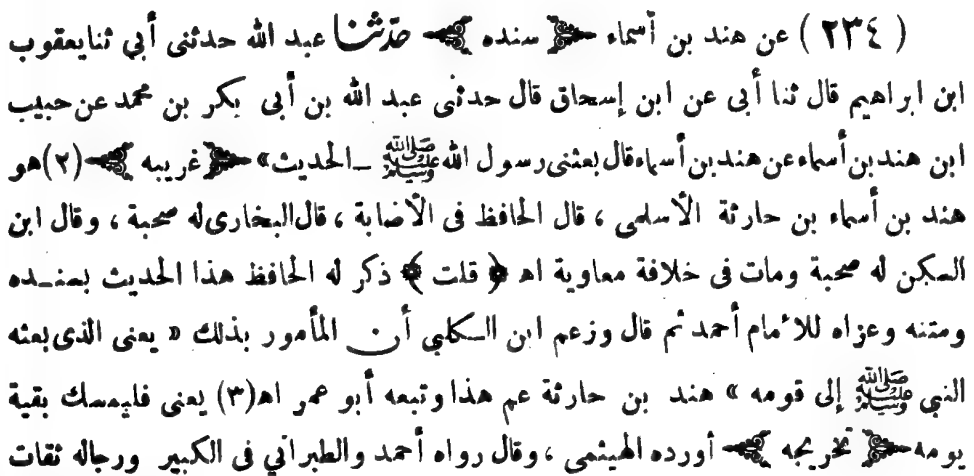 ( ٢٣٤ ) عن هند بن أسماء ﴿ سنده ﴾ حدّثنا عبد الله حدثنى أبي ثنا يعقوب
ابن ابراهيم قال ثنا أبى عن ابن إسحاق قال حدثنى عبد الله بن أبى بكر بن محمد عن حبيب
ابن هند بن أسماء عن هند بن أسماء قال بعثنى رسول الله ﷺ ـ الحديث» ﴿ غريبه ﴾ (٢) هو
هند بن أسماء بن حارثة الأسلمى ، قال الحافظ فى الأضابة ، قال البخارى له صحبة ، وقال ابن
السكن له صحبة ومات فى خلافة معاوية اهـ ﴿ قلت ﴾ ذكر له الحافظ هذا الحديث بسنـده
ومتنه وعزاه للامام أحمد ثم قال وزعم ابن الـكلبي أن المأمور بذلك « يعنى الذى بعثه
النبى ﷺ إلى قومه » هند بن حارثة عم هذا وتبعه أبو عمر اهـ (٣) يعنى فليمسك بقية
يومه ﴿ تخريجه ﴾ أورده الهيثمى ، وقال رواه أحمد والطبراني فى الكبير ورجاله ثقات